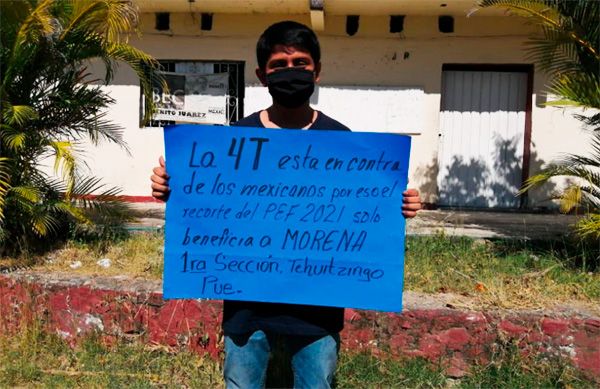 BEC
BENITO JUAREZ
La 4T esta en contra
de los mexicanos por eso el
recorte del PEF 2021 solo
beneficia a MORENA
1ra Sección, Tehuitzingo
Pue.